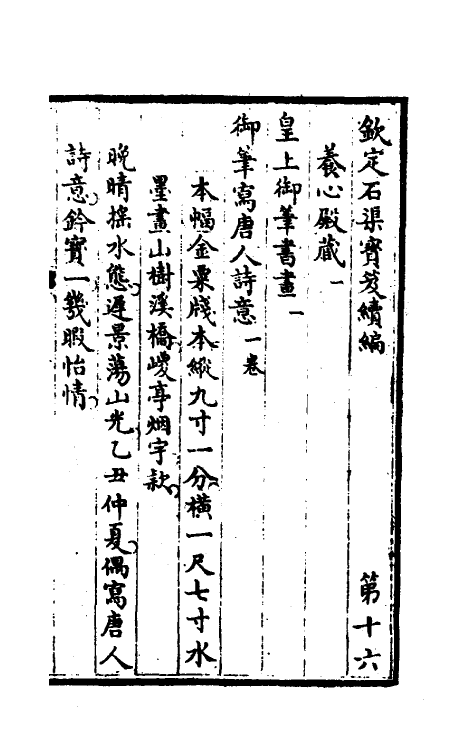 欽定石渠寶笈續編 第十六
養心殿藏一
皇上御筆書畫一
御筆寫唐人詩意一卷
本幅金粟牋本縱九寸一分橫一尺七寸水
墨畫山樹溪橋𡾟亭烟宇款
晚晴搖水態遲景蕩山光乙丑仲夏偶寫唐人
詩意鈐寶一幾暇怡情